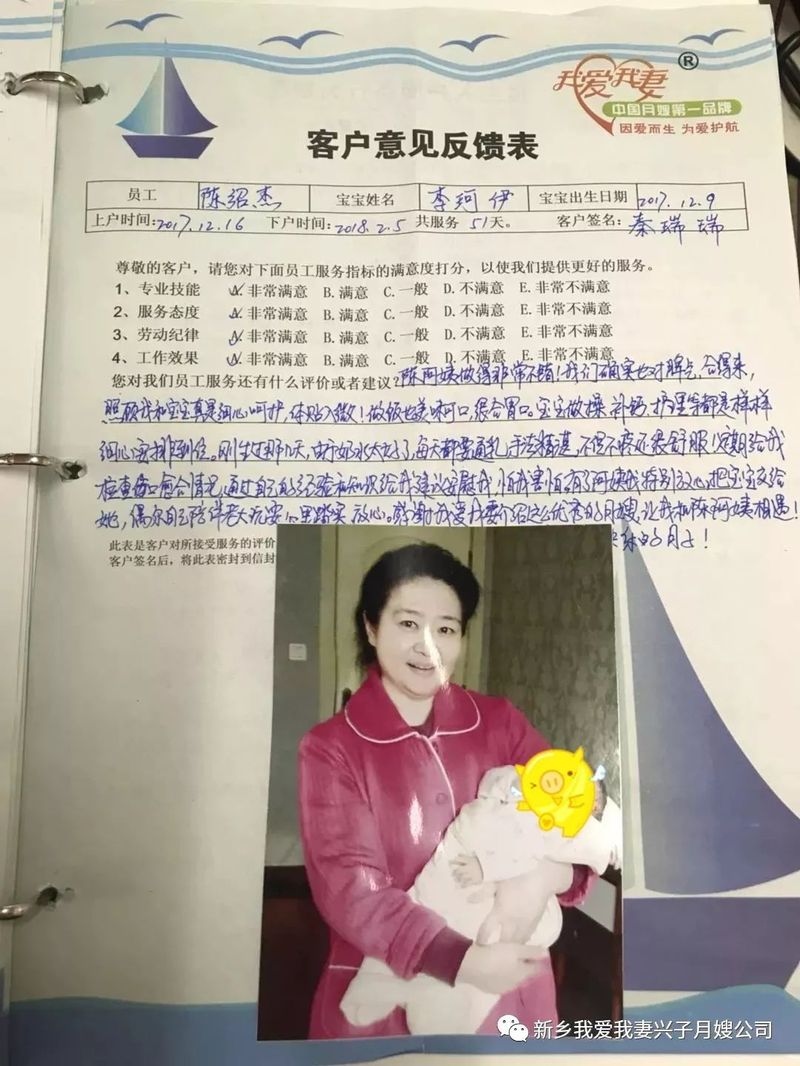 我爱我妻®
中国月嫂第一品牌
因爱而生 为爱护航
客户意见反馈表
员工 陈绍杰 宝宝姓名 李珂伊 宝宝出生日期 2017.12.9
上户时间:2017.12.16 下户时间:2018.2.5 共服务 51天。 客户签名: 秦瑞瑞
尊敬的客户，请您对下面员工服务指标的满意度打分，以使我们提供更好的服务。
1、专业技能 A.非常满意 B.满意 C.一般 D.不满意 E.非常不满意
2、服务态度 A.非常满意 B.满意 C.一般 D.不满意 E.非常不满意
3、劳动纪律 A.非常满意 B.满意 C.一般 D.不满意 E.非常不满意
4、工作效果 A.非常满意 B.满意 C.一般 D.不满意 E.非常不满意
您对我们员工服务还有什么评价或者建议?陈阿姨做得非常不错！我们确实也对脾气，合得来，
照顾我和宝宝真是细心呵护，体贴入微！做饭也美味可口，很合胃口。宝宝做操、补钙、护理等都是样样
细心安排到位。刚生过那几天，由于奶水太好了，每天都要通乳，手法精湛，不但不疼还很舒服！定期给我
检查伤口愈合情况，通过自己的经验和知识给我建议安慰我，怕我害怕。有了阿姨我特别放心把宝宝交给
她，偶尔自己陪伴老大玩耍心里踏实放心。感谢我爱我妻介绍这么优秀的月嫂，让我和陈阿姨相遇！
的月子！
此表是客户对所接受服务的评价
客户签名后，将此表密封到信封
新乡我爱我妻兴子月嫂公司